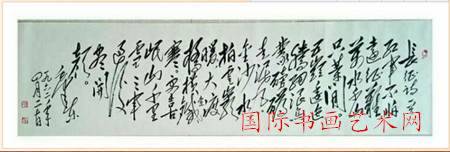 长征诗一首
红军不怕
远征难
万水千山
只等闲
五岭逶迤
腾细浪乌
蒙磅礴
走泥丸
金沙水
拍云崖
暖大渡
桥横铁索
寒更喜
岷山千里
雪三军
过后
尽开
颜
毛泽东
一九六二年
四月二十日
国际书画艺术网